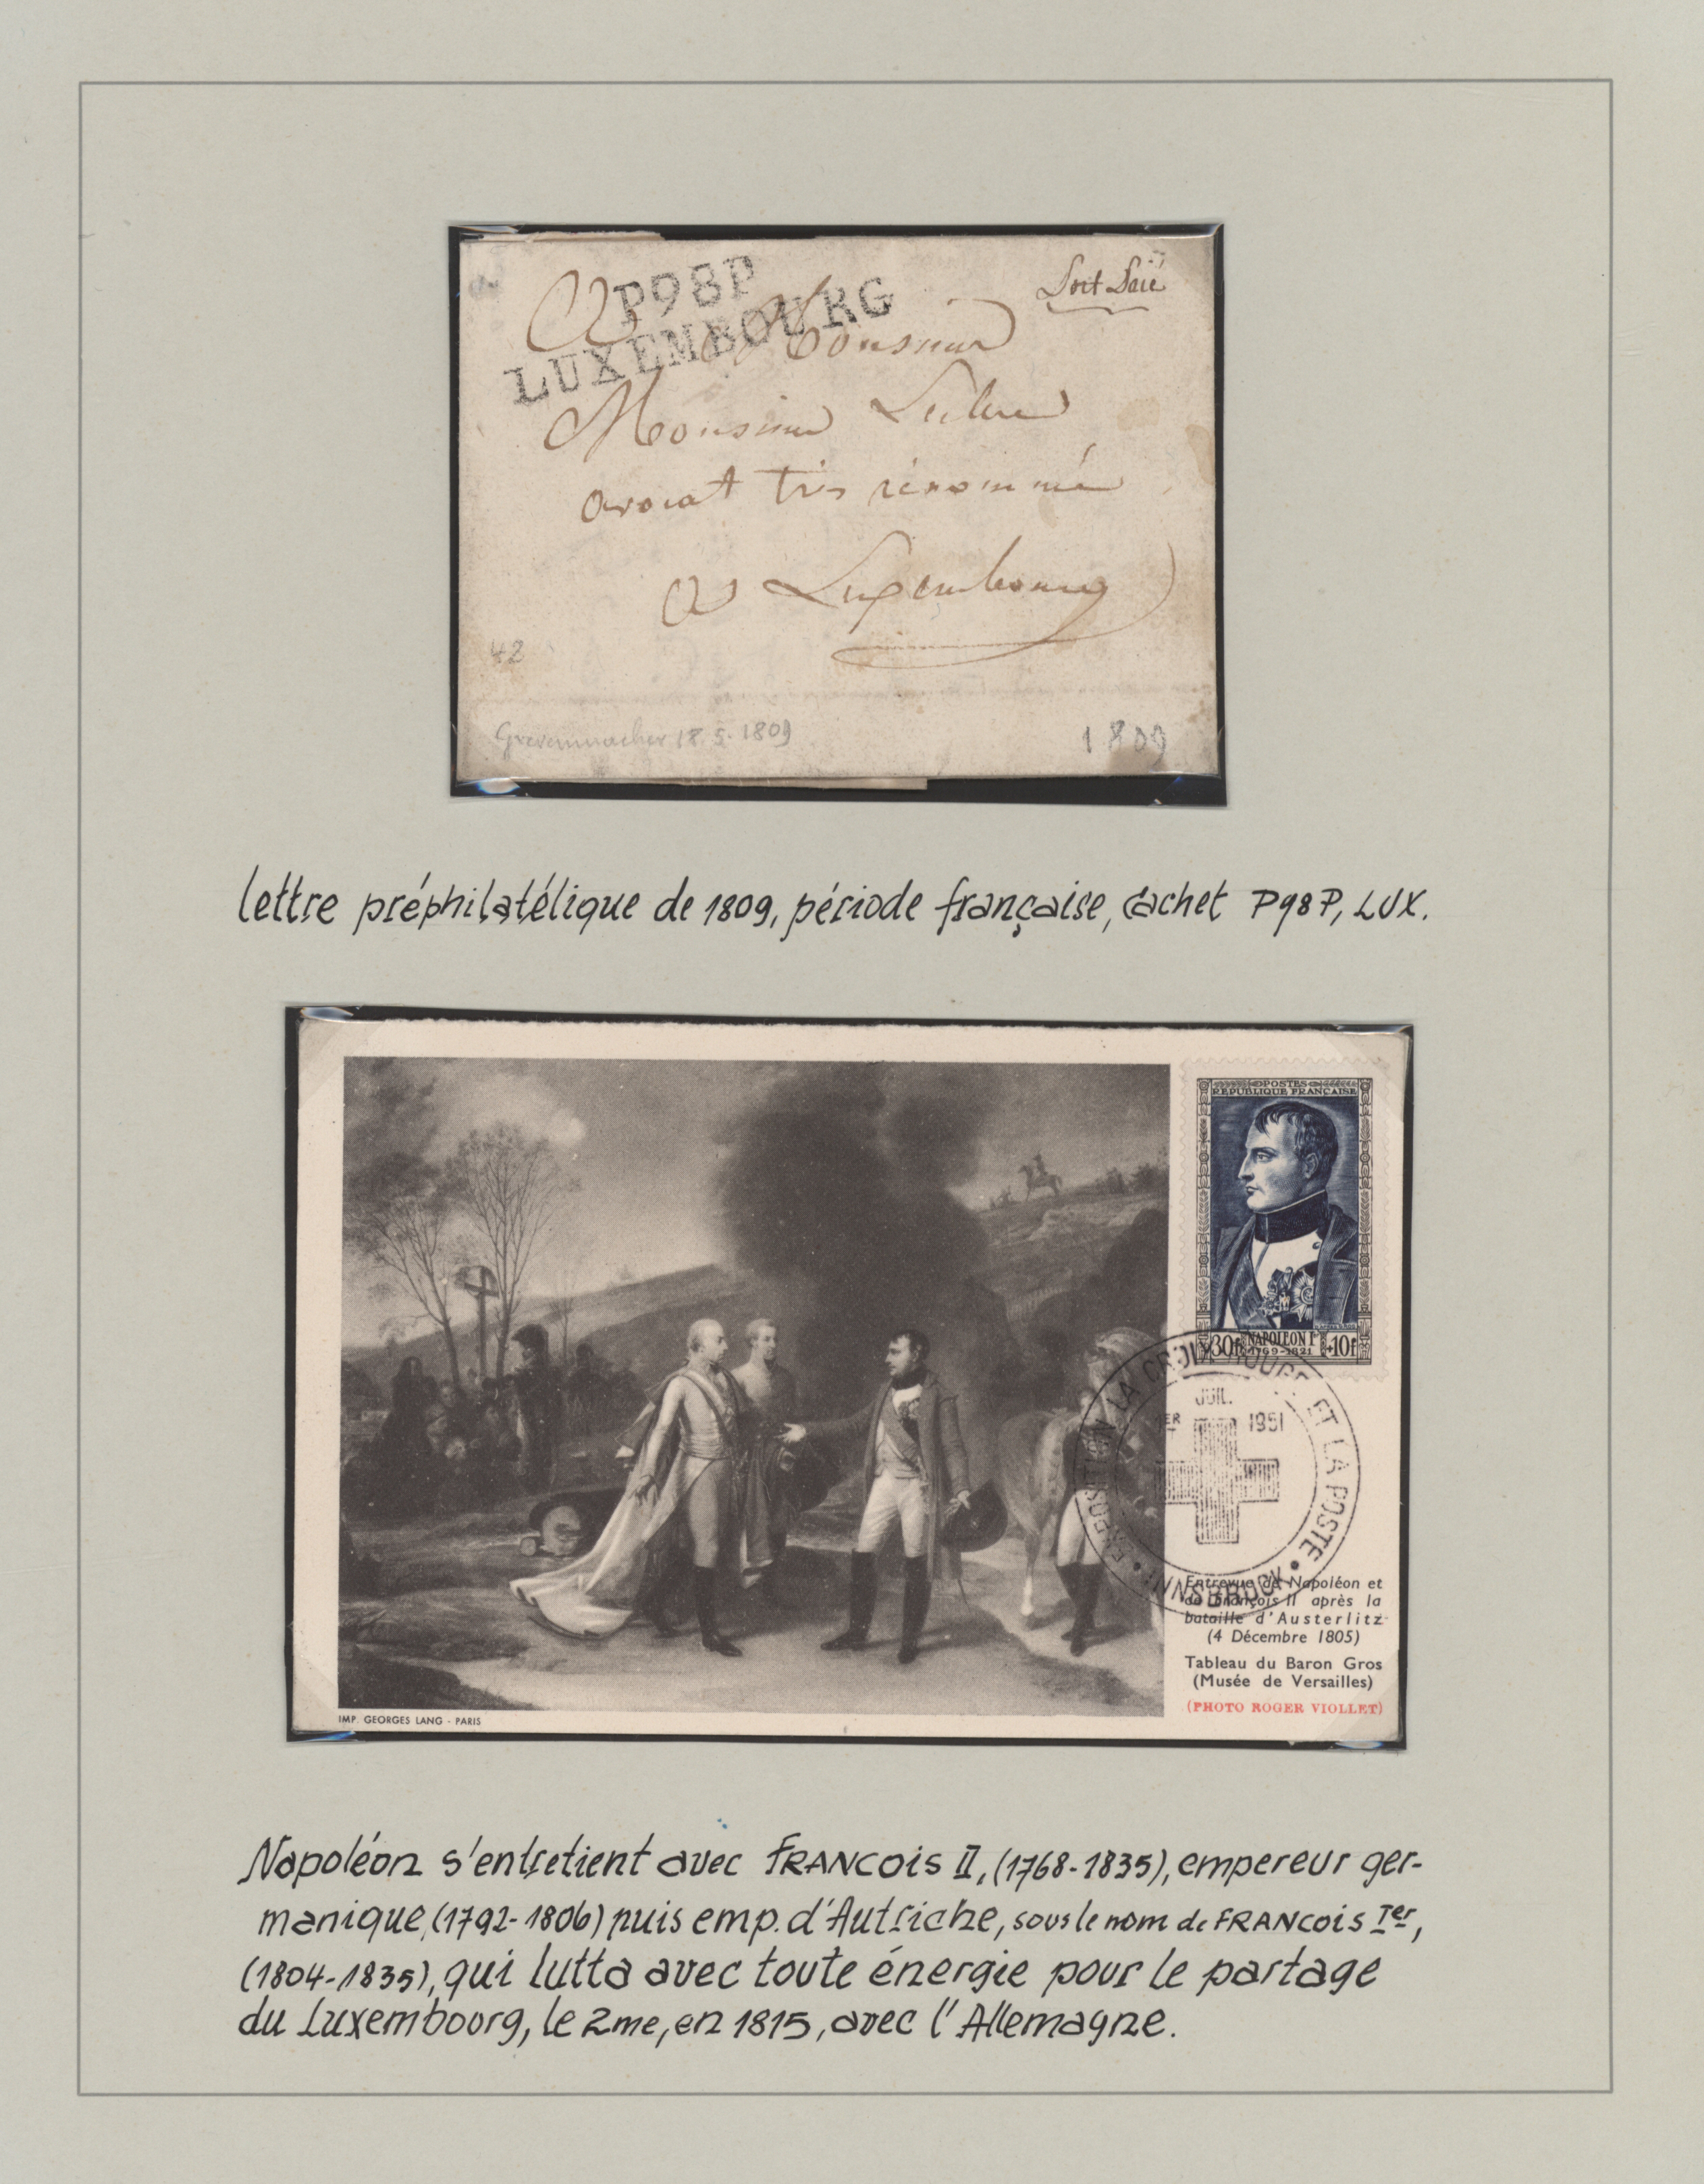 P98P
LUXEMBOURG
Port Paié
A Monsieur
Monsieur
avocat très rénommé
a Luxembourg
42
Grevenmacher 18.5.1809
1809
lettre préphilatélique de 1809, période française, cachet P98P, LUX.
POSTES
REPUBLIQUE FRANÇAISE
30f NAPOLEON Iᵉʳ +10f
1769-1821
EXPOSITION LA CROIX ROUGE ET LA POSTE
1ER JUIL. 1951
• INNSBRUCK •
Entrevue de Napoléon et
de François II après la
bataille d'Austerlitz
(4 Décembre 1805)
Tableau du Baron Gros
(Musée de Versailles)
(PHOTO ROGER VIOLLET)
IMP. GEORGES LANG - PARIS
Napoléon s'entretient avec FRANCOIS II, (1768-1835), empereur ger-
manique, (1792-1806) puis emp. d'Autriche, sous le nom de FRANCOIS Ier,
(1804-1835), qui lutta avec toute énergie pour le partage
du Luxembourg, le 2me, en 1815, avec l'Allemagne.